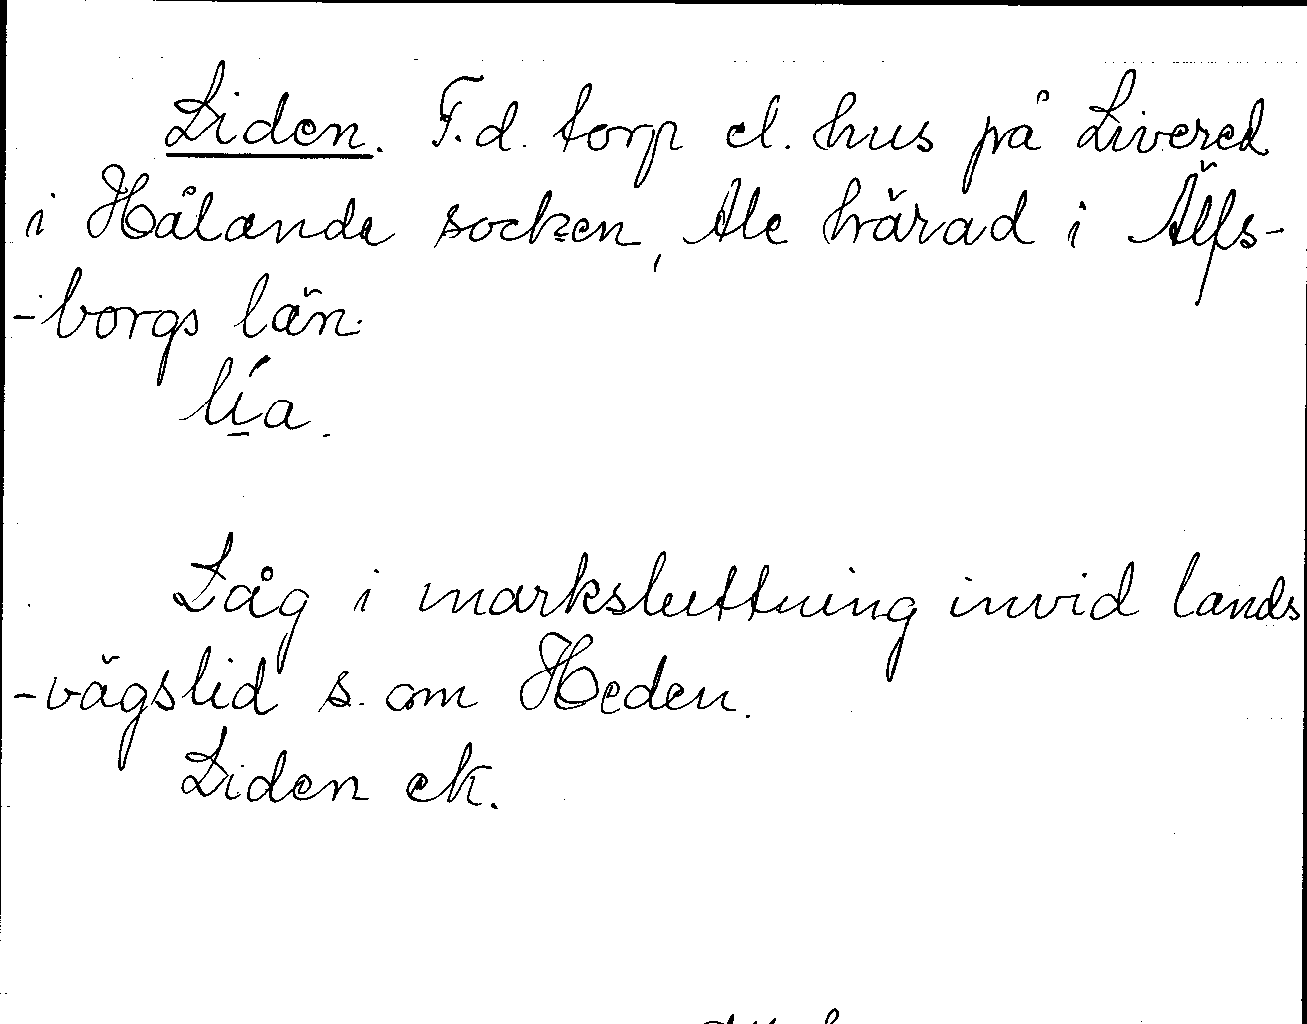 Liden. F.d. torp el. hus på Livered
i Hålanda socken, Ale härad i Älfs-
-borgs län.
lía.
Låg i marksluttning invid lands
-vägslid s. om Heden.
Liden ek.